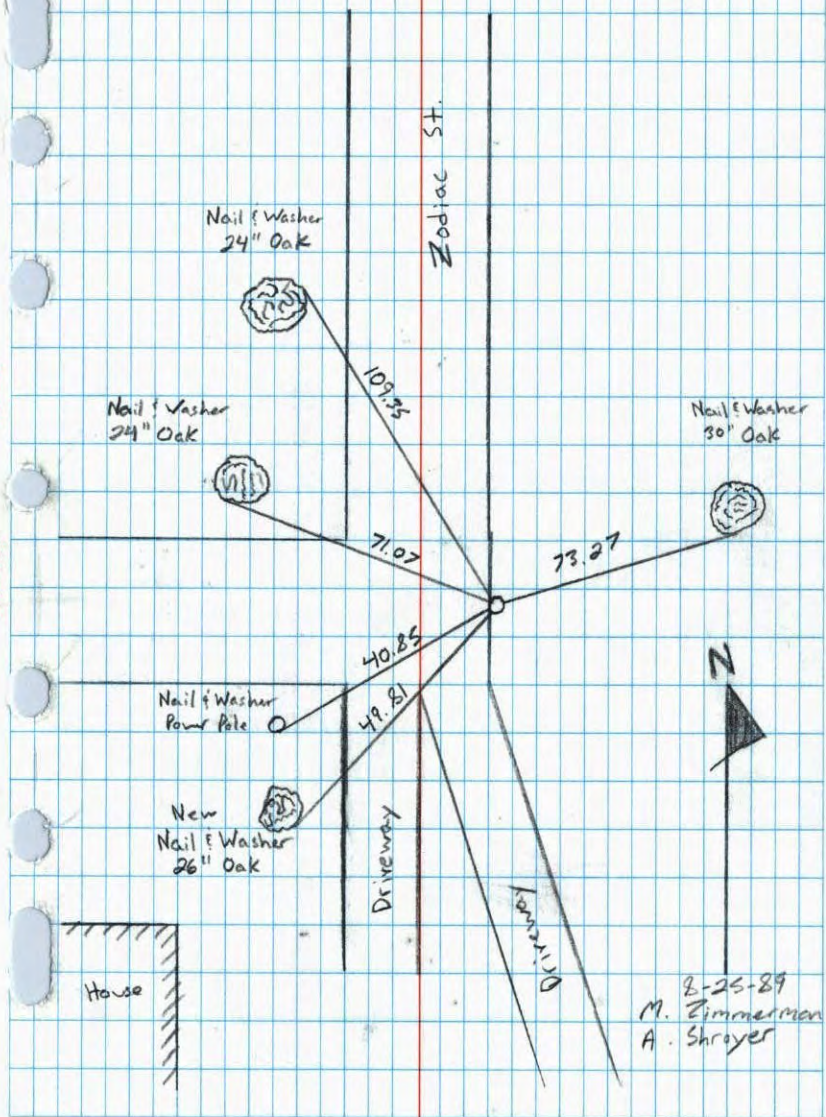 Zodiac St.
Nail & Washer
24" Oak
109.35
Nail & Washer
24" Oak
71.07
Nail & Washer
30" Oak
73.27
40.85
Nail & Washer
Power Pole
49.81
New
Nail & Washer
26" Oak
Driveway
Driveway
N
House
8-25-89
M. Zimmerman
A. Shroyer